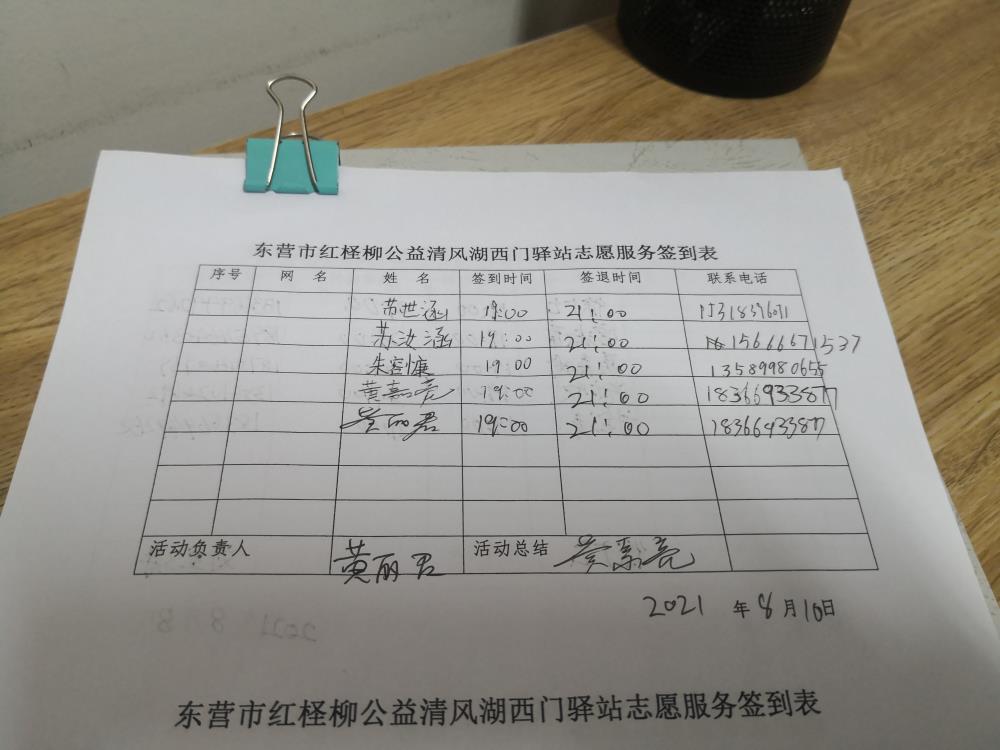 东营市红柽柳公益清风湖西门驿站志愿服务签到表
序号 网 名 姓 名 签到时间 签退时间 联系电话
苏世涵 19:00 21:00
苏汝涵 19:00 21:00 15666671537
朱容慷 19:00 21:00 13589980655
黄嘉亮 19:00 21:00 18366933877
黄丽君 19:00 21:00 18366433877
活动负责人 黄丽君 活动总结 黄嘉亮
2021 年 8 月 10 日
东营市红柽柳公益清风湖西门驿站志愿服务签到表